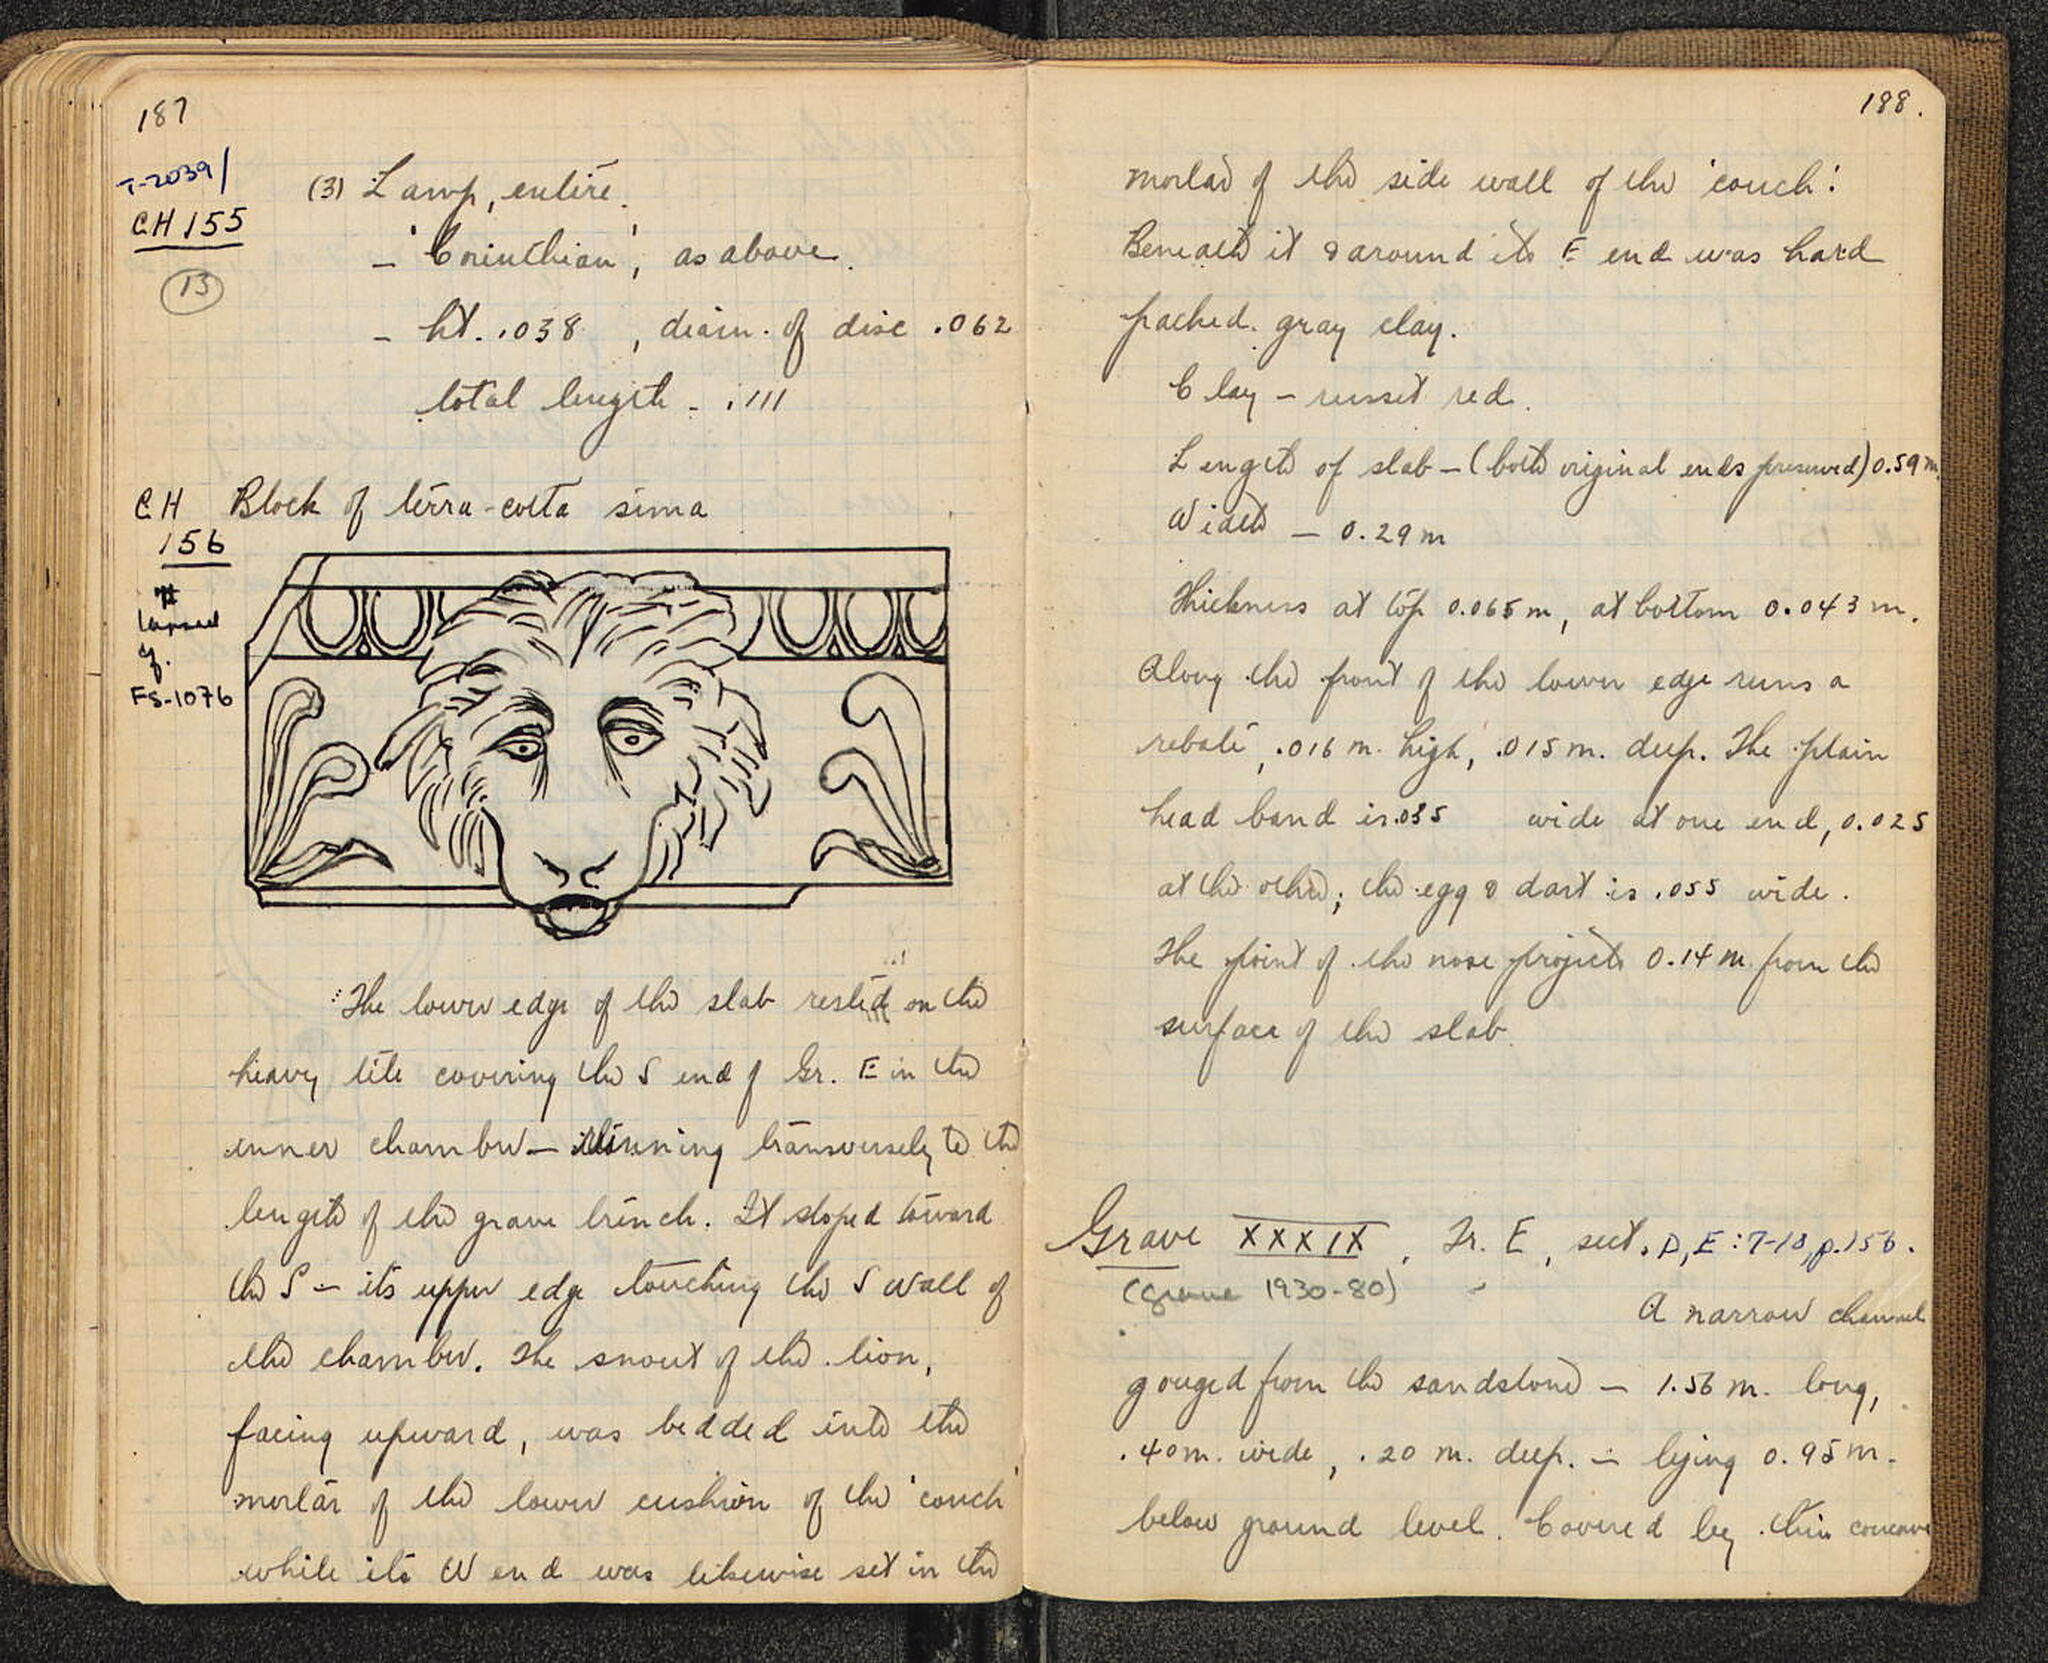 187
T-2039
CH 155
13
(3) Lamp, entire.
- 'Corinthian', as above.
- ht. .038 , diam. of disc .062
total length - .111
CH
156
cf.
FS-1076
Block of terra-cotta sima
The lower edge of the slab rested on the
heavy tile covering the S end of Gr. E in the
inner chamber — running transversely to the
length of the grave trench. It sloped toward
the S — its upper edge touching the S wall of
the chamber. The snout of the lion,
facing upward, was bedded into the
mortar of the lower cushion of the 'couch'
while its W end was likewise set in the
188.
mortar of the side wall of the 'couch'.
Beneath it & around its E end was hard
packed gray clay.
Clay - russet red.
Length of slab - (both original ends preserved) 0.59 m.
Width - 0.29 m
Thickness at top 0.065 m, at bottom 0.043 m.
Along the front of the lower edge runs a
rebate, .016 m. high, .015 m. deep. The plain
head band is .035 wide at one end, 0.025
at the other; the egg & dart is .055 wide.
The point of the nose projects 0.14 m from the
surface of the slab.
Grave XXXIX, Tr. E, sect. D, E: 7-10, p. 156.
(grave 1930-80)
A narrow channel
gouged from the sandstone - 1.56 m. long,
.40 m. wide, .20 m. deep. - lying 0.95 m.
below ground level. Covered by thin concave